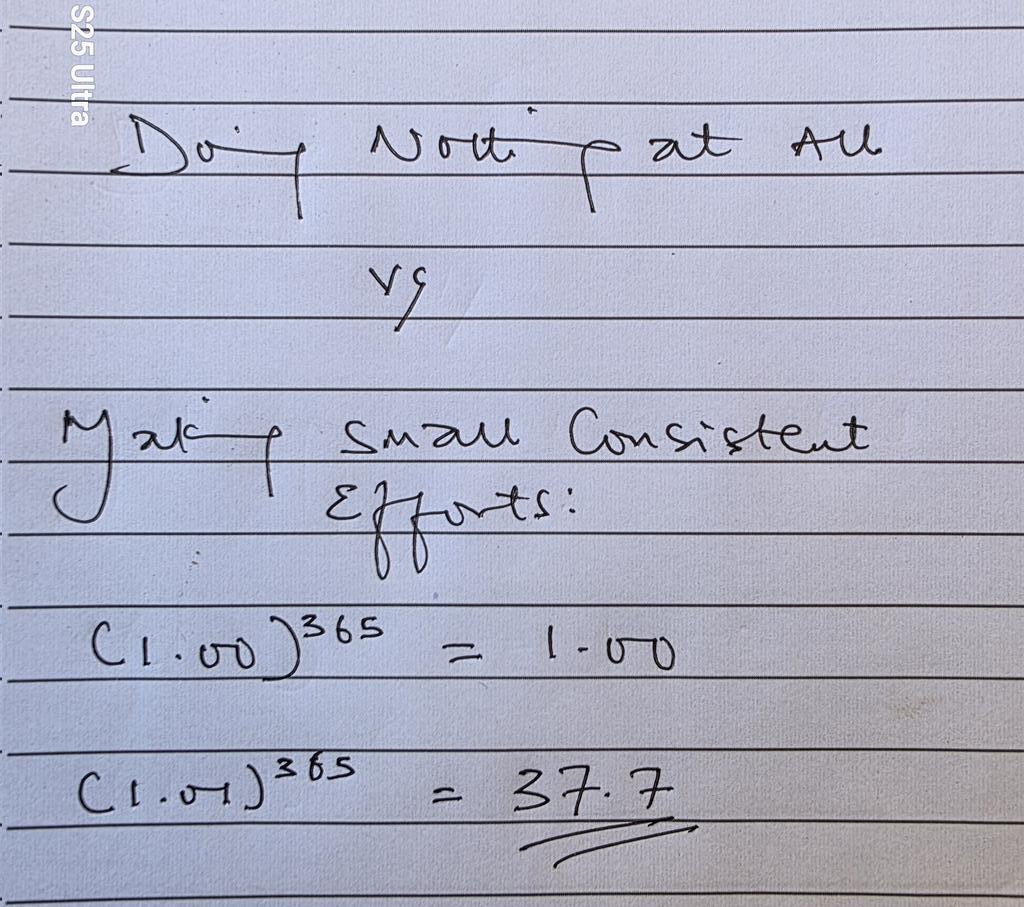 Doing Nothing at All
vs
Making small Consistent
Efforts:
(1.00)³⁶⁵ = 1.00
(1.01)³⁶⁵ = 37.7
S25 Ultra